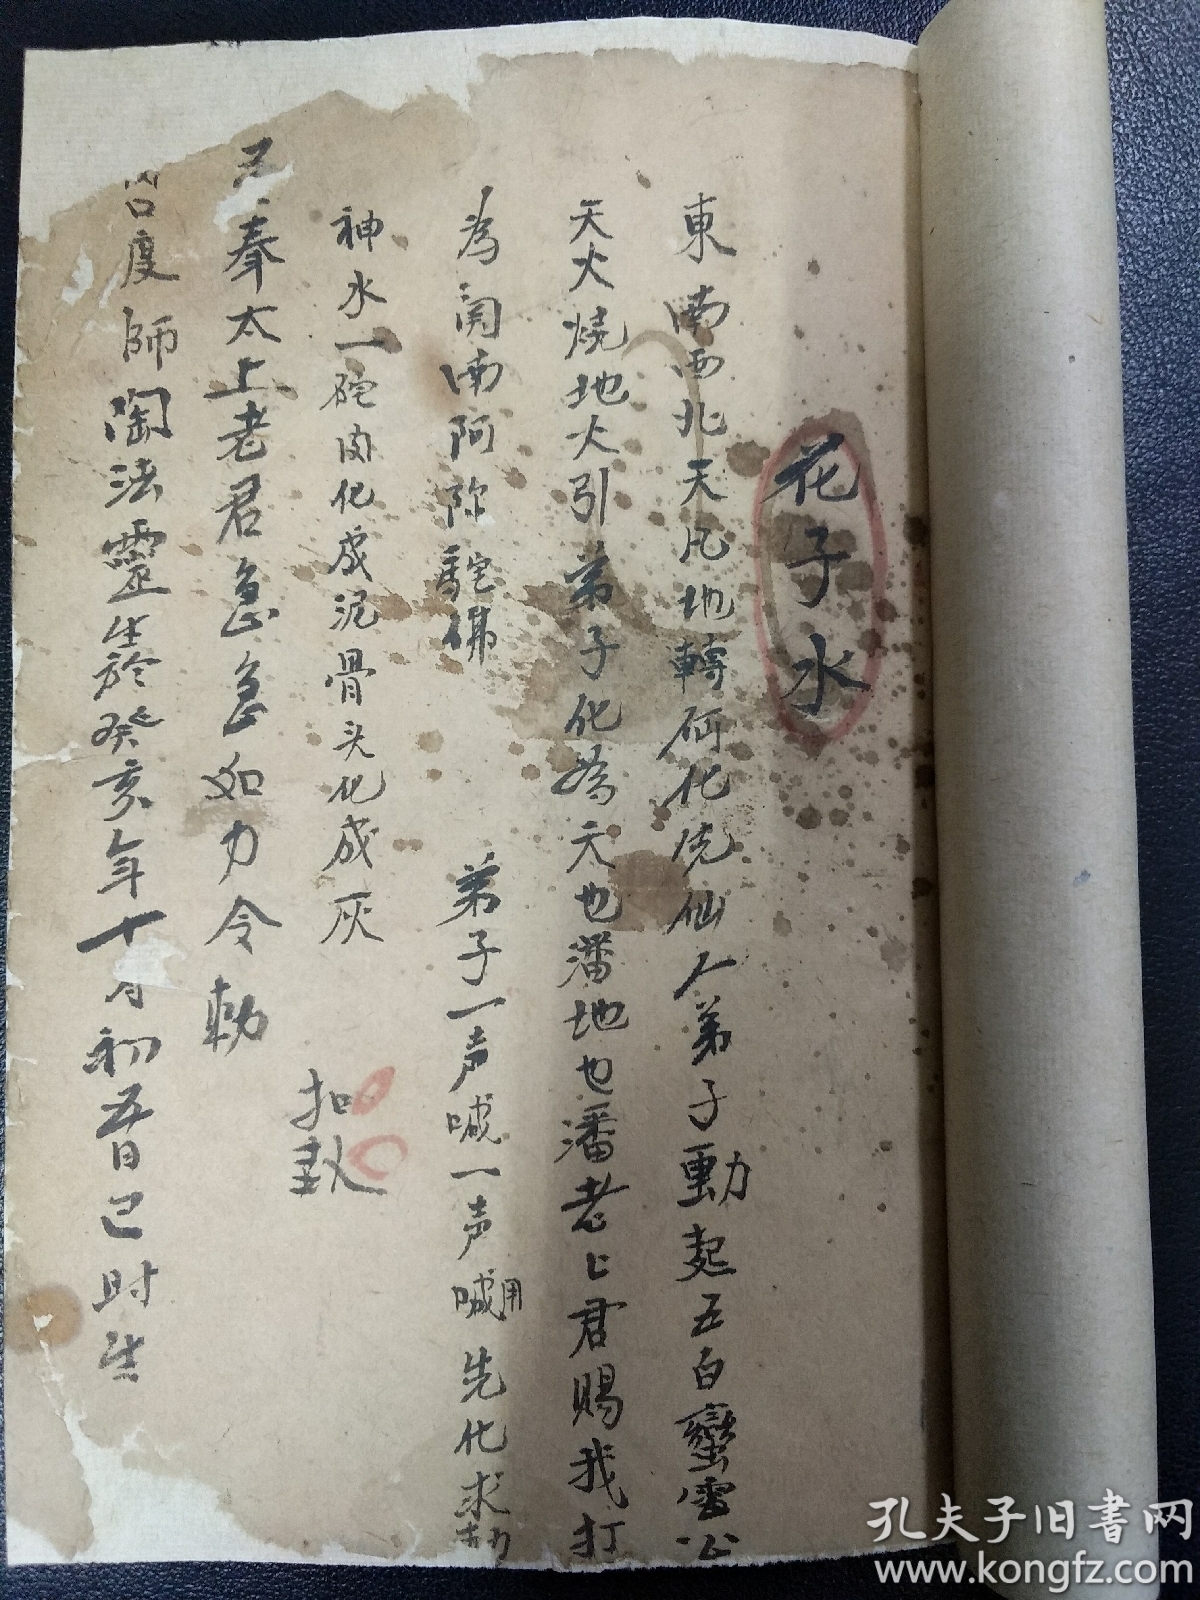 花子水
東南西北天凡地轉 化 仙人弟子動起五百蠻雷公
天火燒地火引弟子化為天也潘地也潘老上君賜我打
為 南阿弥 佛 弟子一声喊一声喊用先化求
神水一碗肉化成泥骨头化成灰
扣
奉太上老君急急如力令勅
度師陶法靈生於癸亥年十月初五日巳时生
孔夫子旧书网
www.kongfz.com